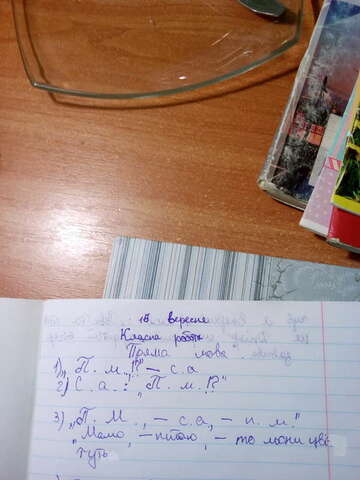 15 вересня
Класна робота
Пряма мова.
1) „П. м.!?" – с.а
2) С. а.: „П. м.!?"
3) „П. М., – с.а, – п. м."
„Мамо, – питаю, – то льони цві-
туть